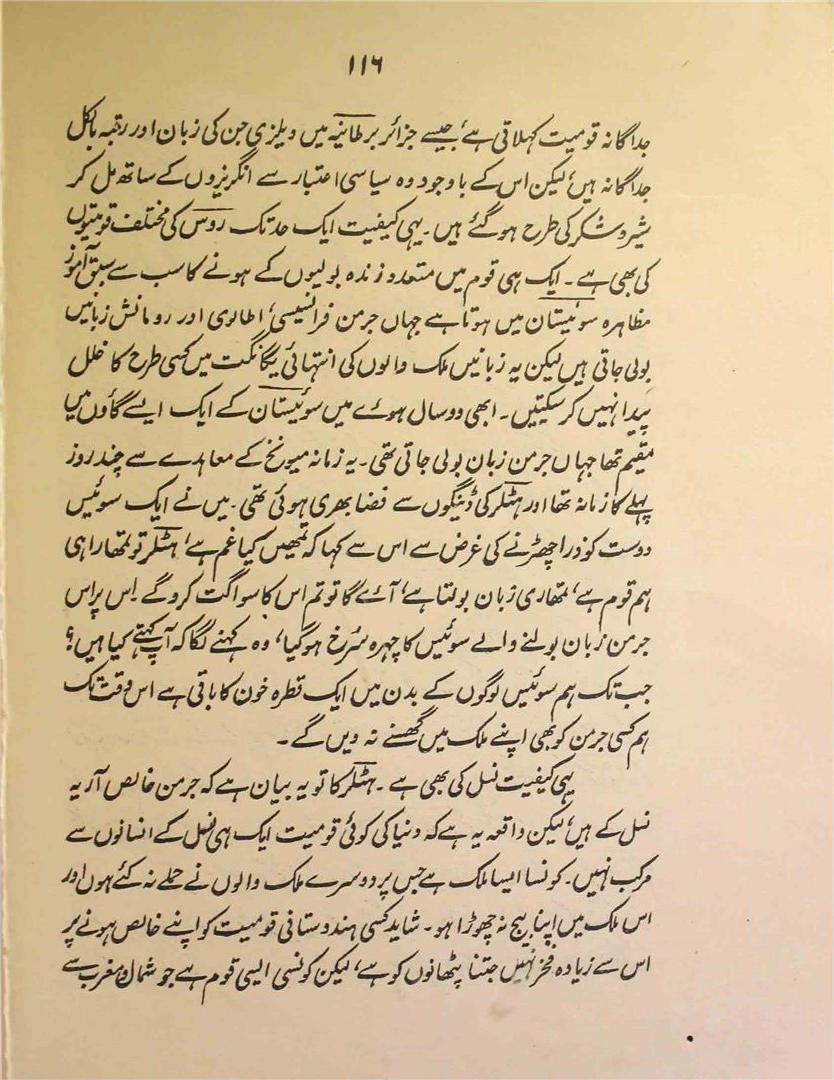 ۱۱۶
جداگانہ قومیت کہلاتی ہے، جیسے جزائر برطانیہ میں ویلزی جن کی زبان اور رقبہ بالکل
جداگانہ ہیں، لیکن اس کے باوجود وہ سیاسی اعتبار سے انگریزوں کے ساتھ مل کر
شیر و شکر کی طرح ہوگئے ہیں۔ یہی کیفیت ایک حد تک روس کی مختلف قومیتوں
کی بھی ہے۔ ایک ہی قوم میں متعدد زندہ بولیوں کے ہونے کا سب سے سبق آموز
مظاہرہ سوئیستان میں ہوتا ہے جہاں جرمن فرانسیسی، اطالوی اور رومانش زبانیں
بولی جاتی ہیں لیکن یہ زبانیں ملک والوں کی انتہائی یگانگت میں کسی طرح کا خلل
پیدا نہیں کر سکتیں۔ ابھی دو سال ہوئے میں سوئیستان کے ایک ایسے گاؤں میں
مقیم تھا جہاں جرمن زبان بولی جاتی تھی۔ یہ زمانہ میونخ کے معاہدے سے چند روز
پہلے کا زمانہ تھا اور ہٹلر کی ڈینگوں سے فضا بھری ہوئی تھی۔ میں نے ایک سوئیس
دوست کو ذرا چھڑنے کی غرض سے اس سے کہا کہ تمھیں کیا غم ہے، ہٹلر تو تمھارا ہی
ہم قوم ہے، تمھاری زبان بولتا ہے، آئے گا تو تم اس کا سواگت کروگے۔ اس پر اس
جرمن زبان بولنے والے سوئیس کا چہرہ سُرخ ہوگیا، وہ کہنے لگا کہ آپ کہتے کیا ہیں؟
جب تک ہم سوئیس لوگوں کے بدن میں ایک قطرہ خون کا باقی ہے اس وقت تک
ہم کسی جرمن کو بھی اپنے ملک میں گھسنے نہ دیں گے۔
یہی کیفیت نسل کی بھی ہے۔ ہٹلر کا تو یہ بیان ہے کہ جرمن خالص آریہ
نسل کے ہیں، لیکن واقعہ یہ ہے کہ دنیا کی کوئی قومیت ایک ہی نسل کے انسانوں سے
مرکب نہیں۔ کونسا ایسا ملک ہے جس پر دوسرے ملک والوں نے حملے نہ کئے ہوں اور
اس ملک میں اپنا بیج نہ چھوڑا ہو۔ شاید کسی ہندوستانی قومیت کو اپنے خالص ہونے پر
اس سے زیادہ فخر نہیں جتنا پٹھانوں کو ہے، لیکن کونسی ایسی قوم ہے جو شمال و مغرب سے